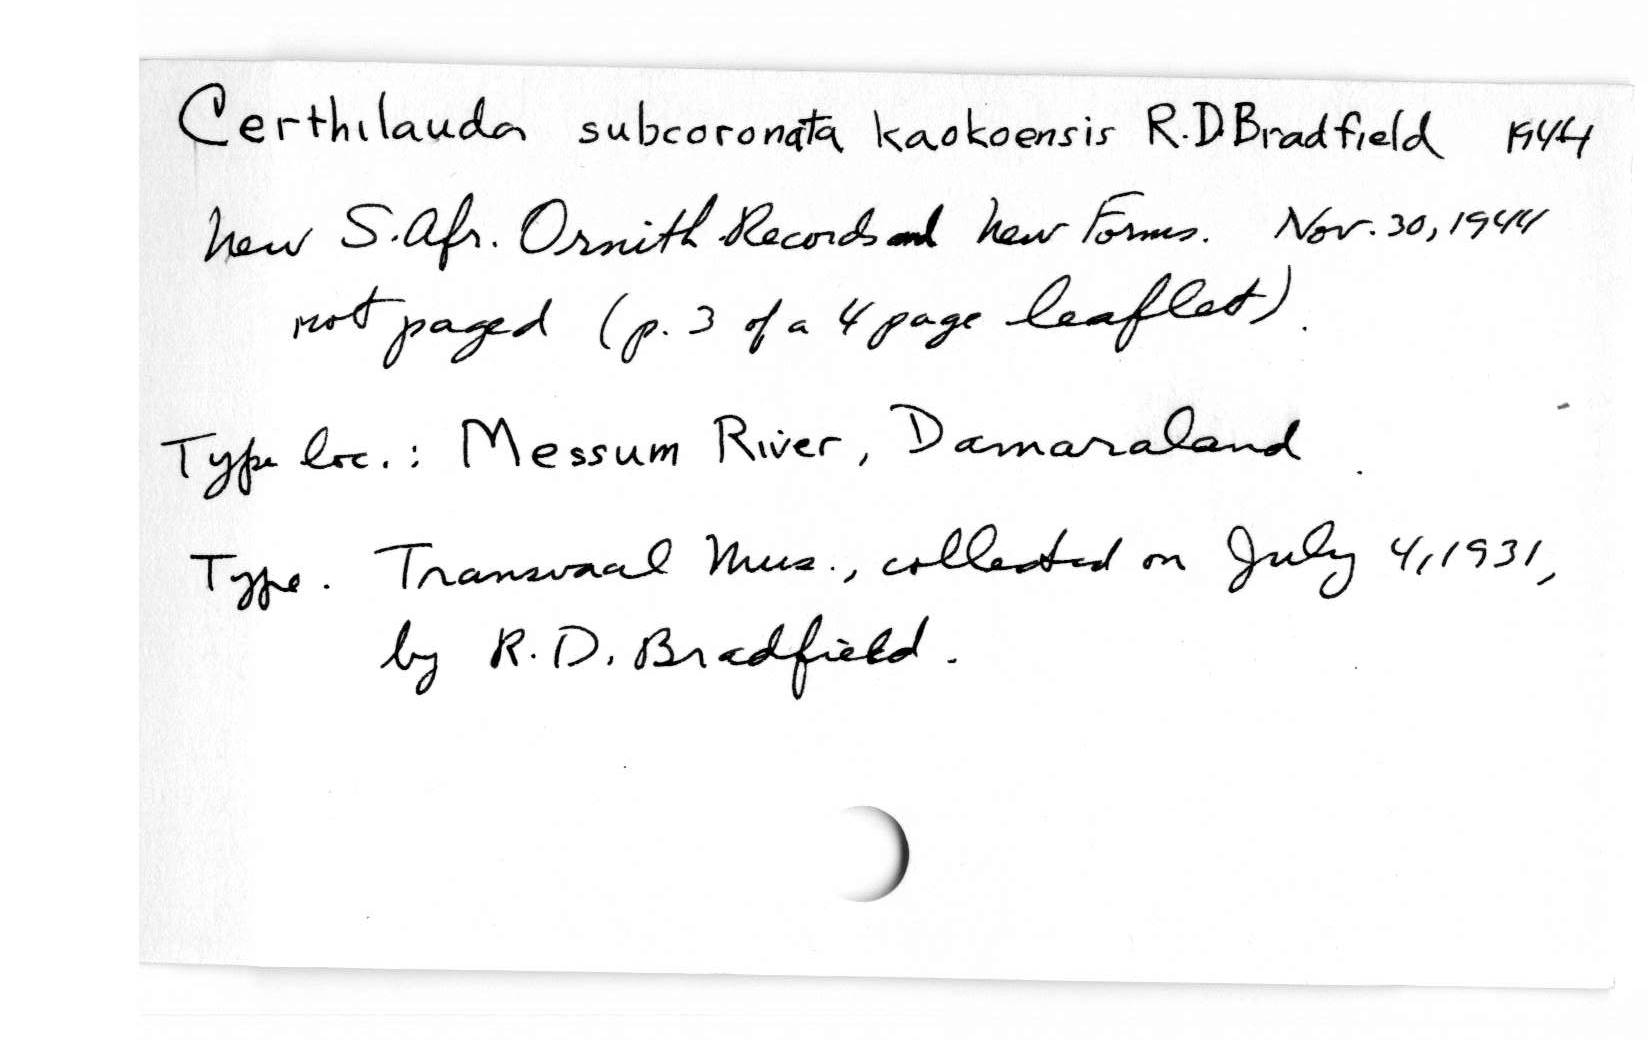 Certhilauda subcoronata kaokoensis R.D.Bradfield 1944
New S.Afr. Ornith. Records and New Forms. Nov. 30, 1944
not paged (p. 3 of a 4 page leaflet).
Type loc.: Messum River, Damaraland.
Type. Transvaal Mus., collected on July 4, 1931,
by R. D. Bradfield.